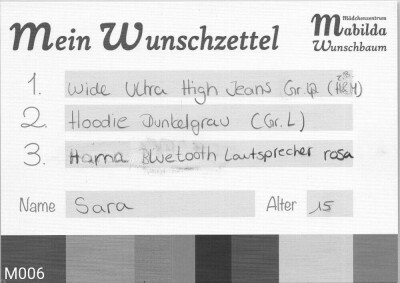 Mein Wunschzettel
Mädchenzentrum
Mabilda
Wunschbaum
1. Wide Ultra High Jeans Gr. (z.B. H&M)
2. Hoodie Dunkelgrau (Gr. L)
3. Hama Bluetooth Lautsprecher rosa
Name Sara Alter 15
M006